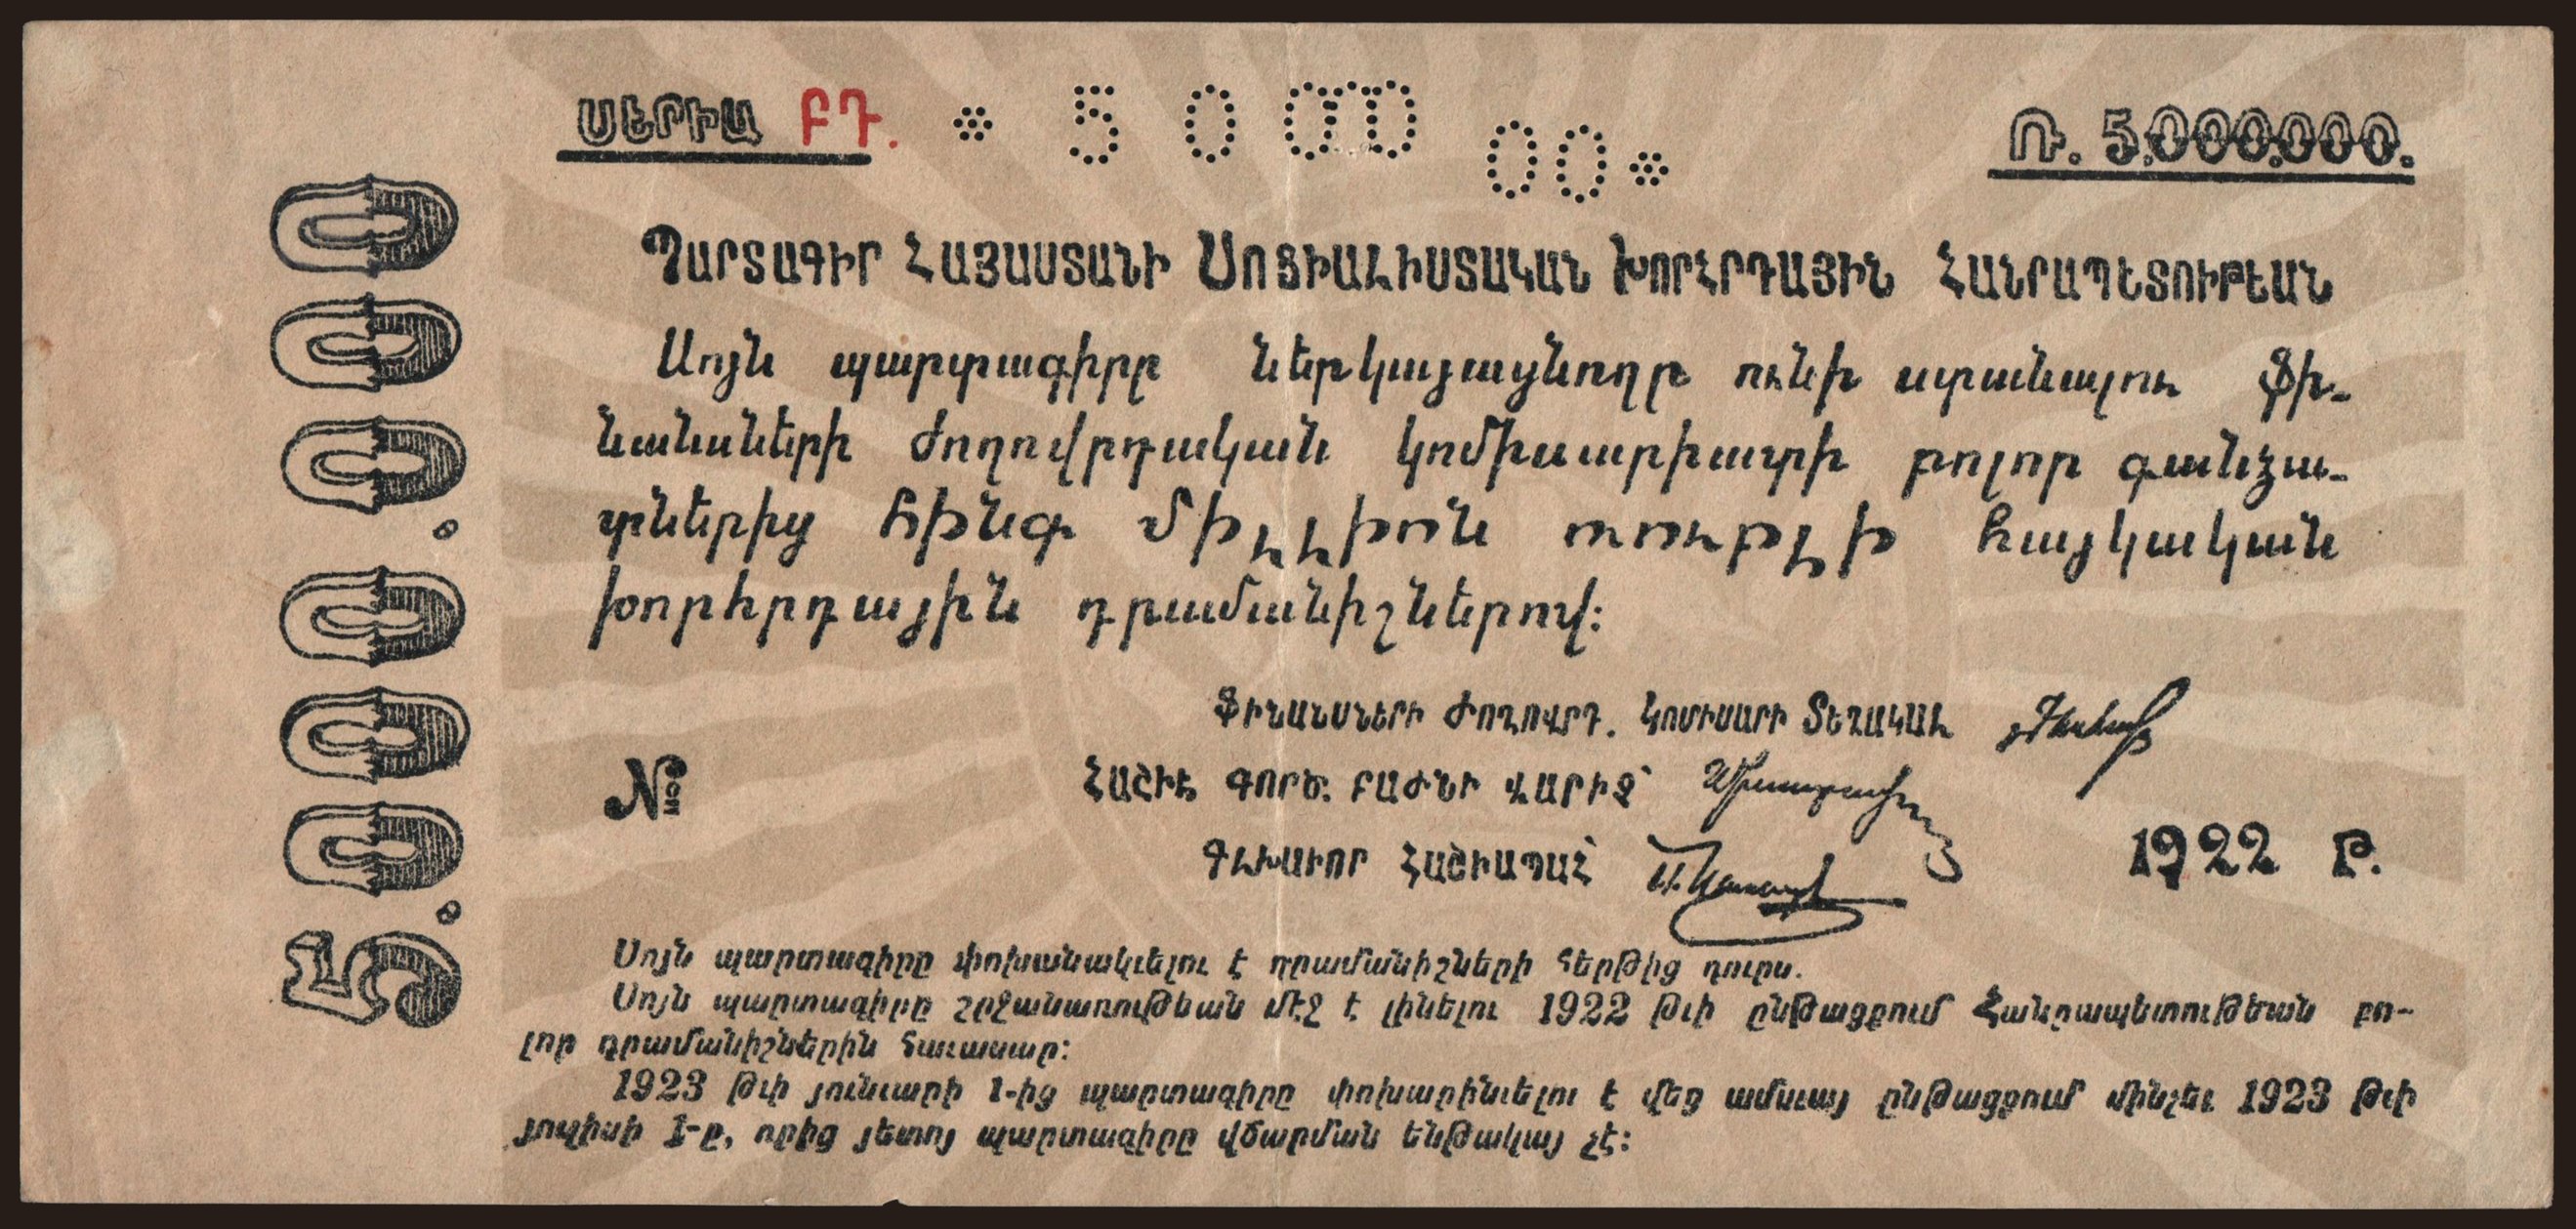 ՍԵՐԻԱ ԲԴ. * 5 0 000 00 *
Ռ. 5.000.000.
5.000.000
ՊԱՐՏԱԳԻՐ ՀԱՅԱՍՏԱՆԻ ՍՈՑԻԱԼԻՍՏԱԿԱՆ ԽՈՐՀՐԴԱՅԻՆ ՀԱՆՐԱՊԵՏՈՒԹԵԱՆ
Սոյն պարտագիրը ներկայացնողը ունի ստանալու ֆի-
նանսների ժողովրդական կոմիսարիատի բոլոր գանձա-
րաններից հինգ միլլիոն ռուբլի հայկական
խորհրդային դրամանիշներով:
ՖԻՆԱՆՍՆԵՐԻ ԺՈՂՈՎՐԴ. ԿՈՄԻՍԱՐԻ ՏԵՂԱԿԱԼ
№
ՀԱՇԻՒ ԳՈՐԾ. ԲԱԺՆԻ ՎԱՐԻՉ՝
ԳԼԽԱՒՈՐ ՀԱՇԻԱՊԱՀ՝
1922 Թ.
Սոյն պարտագիրը փոխանակւելու է դրամանիշների հերթից դուրս.
Սոյն պարտագիրը շրջանառութեան մէջ է լինելու 1922 թւի ընթացքում Հանրապետութեան բո-
լոր դրամանիշներին հաւասար:
1923 թւի յունւարի 1-ից պարտագիրը փոխարինւելու է վեց ամսւայ ընթացքում մինչեւ 1923 թւի
յուլիսի 1-ը, որից յետոյ պարտագիրը վճարման ենթակայ չէ: